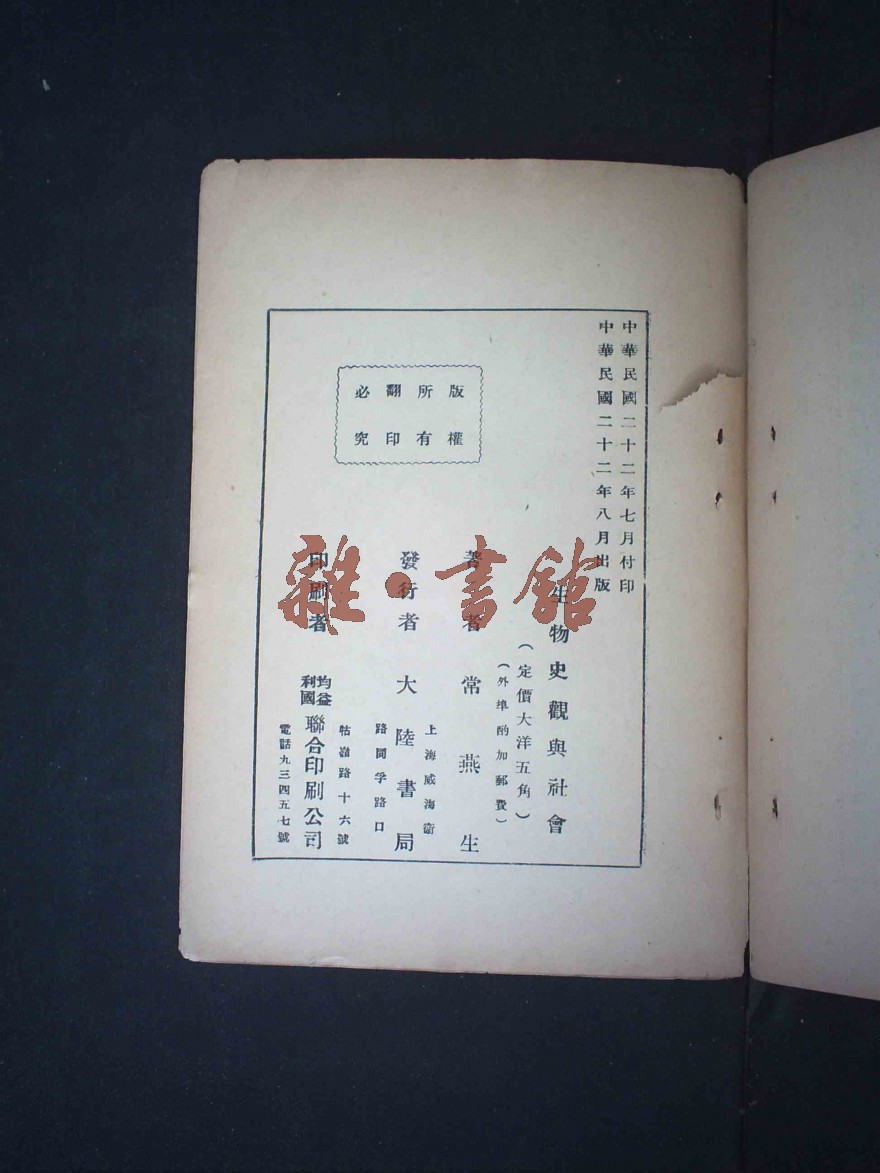 中華民國二十二年七月付印
中華民國二十二年八月出版
版權
所有
翻印
必究
生物史觀與社會
(定價大洋五角)
(外埠酌加郵費)
著者 常燕生
發行者 大陸書局
上海威海衛
路同孚路口
印刷者 均益利國聯合印刷公司
牯嶺路十六號
電話九三四五七號
雜·書館